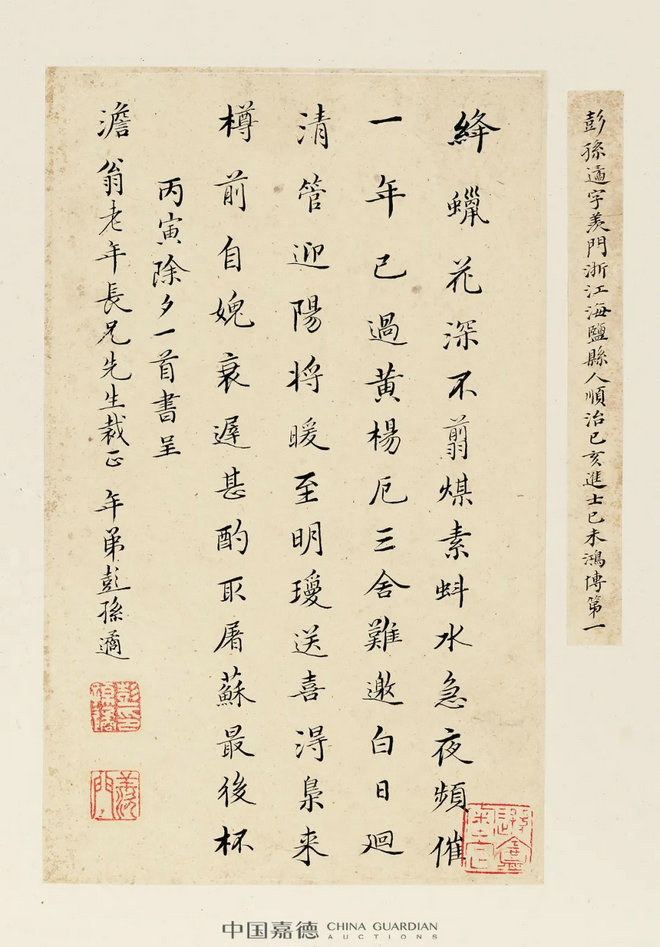 彭孫遹字羨門浙江海鹽縣人順治己亥進士己未鴻博第一
絳蠟花深不翦煤素蚪水急夜頻催
一年已過黃楊厄三舍難邀白日迴
清管迎陽將暖至明瓊送喜得梟来
樽前自媿衰遲甚酌取屠蘇最後杯
丙寅除夕一首書呈
澹翁老年長兄先生裁正 年弟彭孫遹
羨門
中国嘉德 CHINA GUARDIAN
AUCTIONS